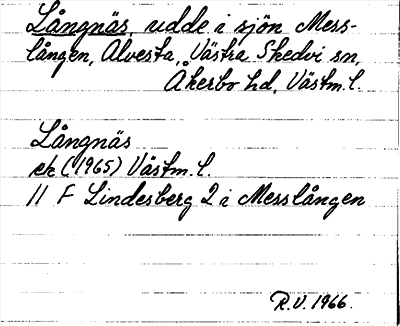 Långnäs, udde i sjön Mess-
lången, Alvesta, Västra Skedvi sn,
Åkerbo hd, Västm. l.
Långnäs
ek (1965) Västm. l.
11 F Lindesberg 2 i Messlången
R.V. 1966.